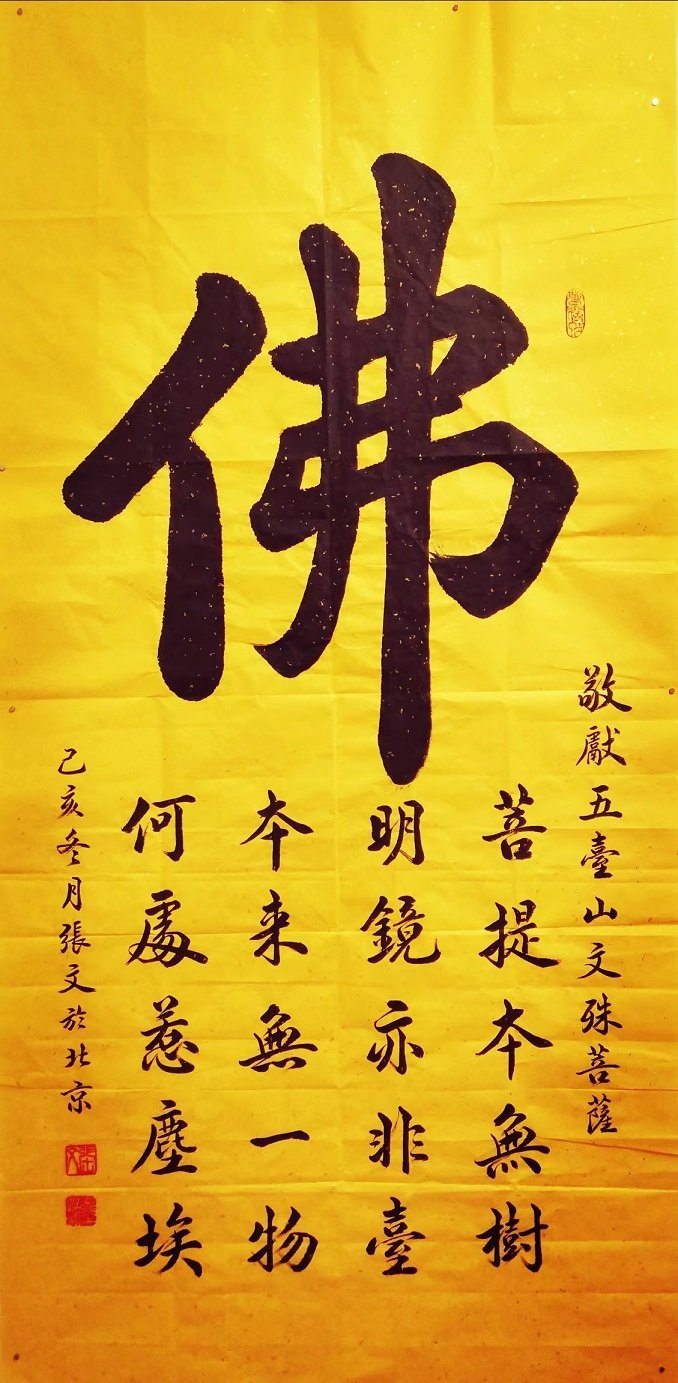 佛
敬獻五臺山文殊菩薩
菩提本無樹
明鏡亦非臺
本来無一物
何處惹塵埃
己亥冬月張文於北京
張文